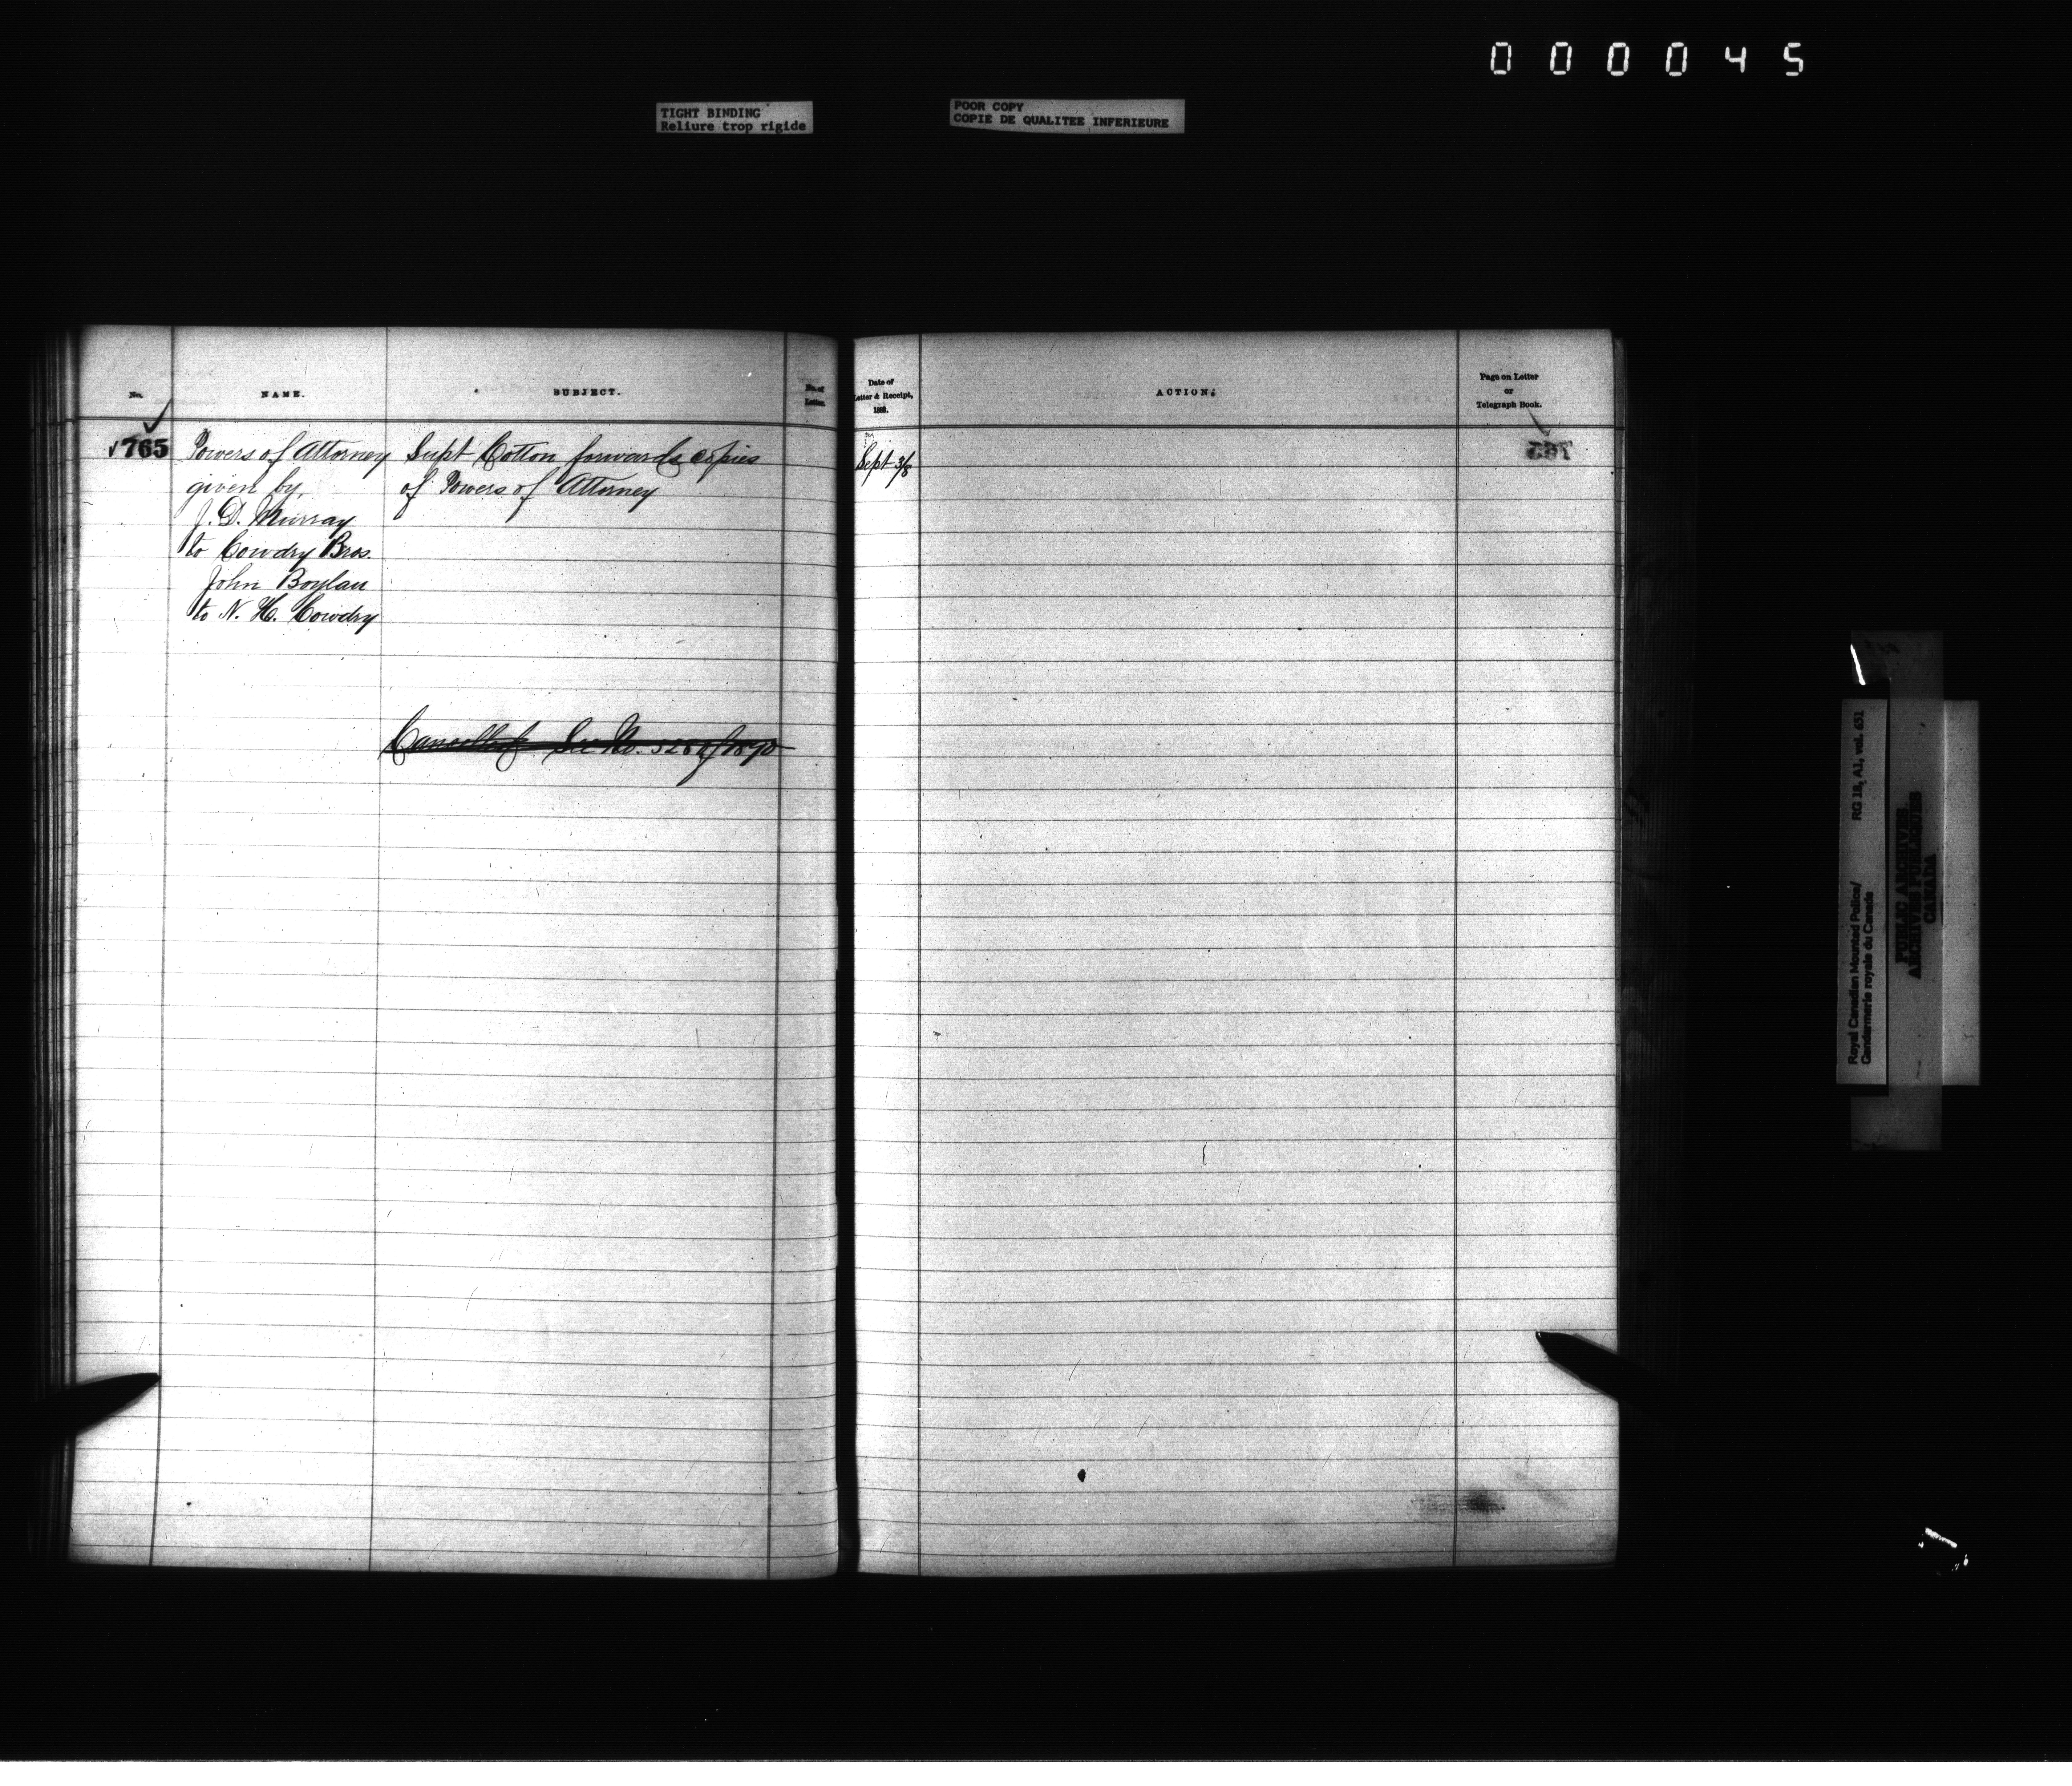 000045
TIGHT BINDING
Reliure trop rigide
POOR COPY
COPIE DE QUALITEE INFERIEURE
No.
NAME.
SUBJECT.
No. of
Letter.
Date of
Letter & Receipt,
188 .
ACTION.
Page on Letter
or
Telegraph Book.
765
Powers of Attorney
given by,
J. D. Murray
to Cowdry Bros.
John Boylan
to N. H. Cowdry
Supt Cotton forwards copies
of Powers of Attorney
Cancelled See No.
Sept 3/8
765
Royal Canadian Mounted Police/
Gendarmerie royale du Canada
RG 18, A1, vol. 651
PUBLIC ARCHIVES
ARCHIVES PUBLIQUES
CANADA